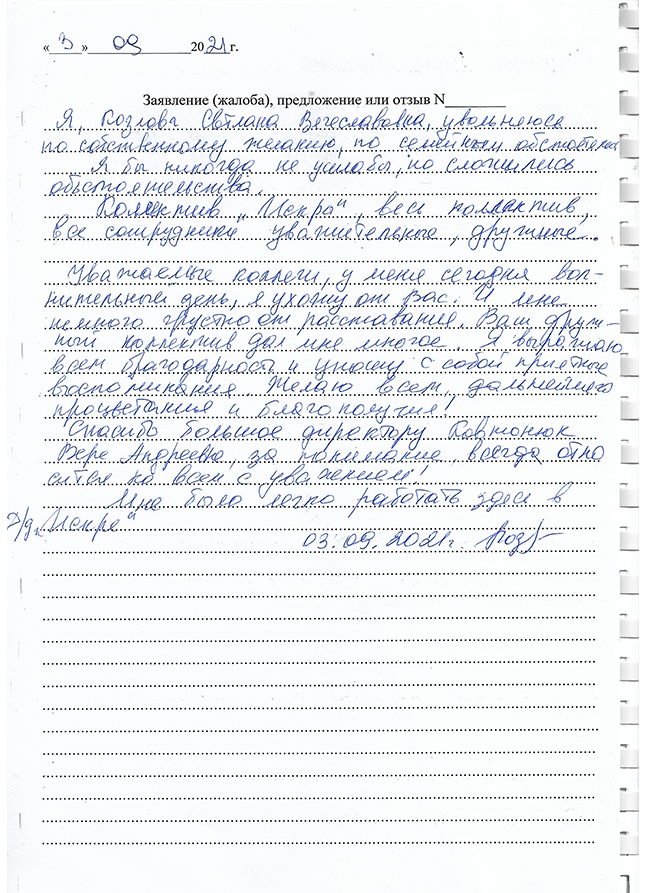 « 3 » 09 2021 г.
Заявление (жалоба), предложение или отзыв N
Я, Козлова Свтлана Вечеславовна, увольнеюсь
по собственному желанию, по семейным обстоятел
Я бы никогда не ушла бы, но сложились
обьстоятельства.
Коллектив „Искра", весь коллектив,
все сотрудники уважительные, дружные...
Уважаемые коллеги, у меня сегодня вол-
нительный день, я ухожу от Вас. И мне
немного грустно от расставания. Ваш друж-
ный коллектив дал мне многое. Я выражаю
всем благодарность и уношу с собой приятные
воспоминания. Желаю всем, дальнейшего
процветания и благополучия!
Спасибо большое директору Ковтонюк
Вере Андреевне, за понимание, всегда отно
сится ко всем с уважением!
Мне было легко работать здесь в
Д/д „Искре"
03.09.2021г. Коз